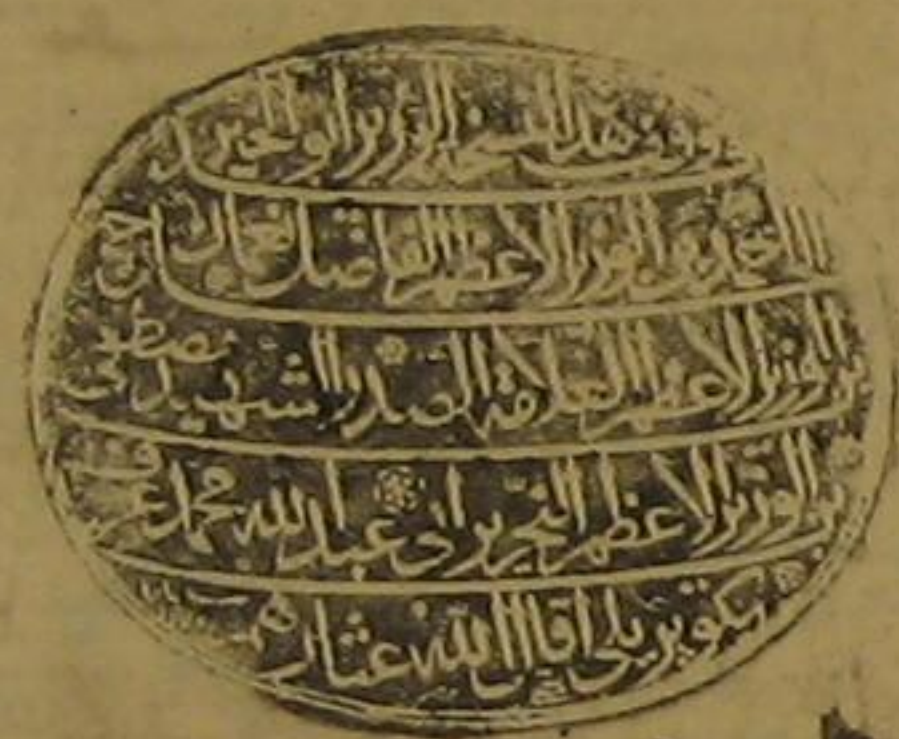 وقف هذا الوزير ابو الخير
احمد بن الوزير الاعظم الفاضل نعمان الحاج
بن الوزير الاعظم العلامة الصدر الشهيد مصطفى
بن الوزير الاعظم النحرير ابى عبد الله محمد عرف
بكوبريلى اقال الله عثارهم